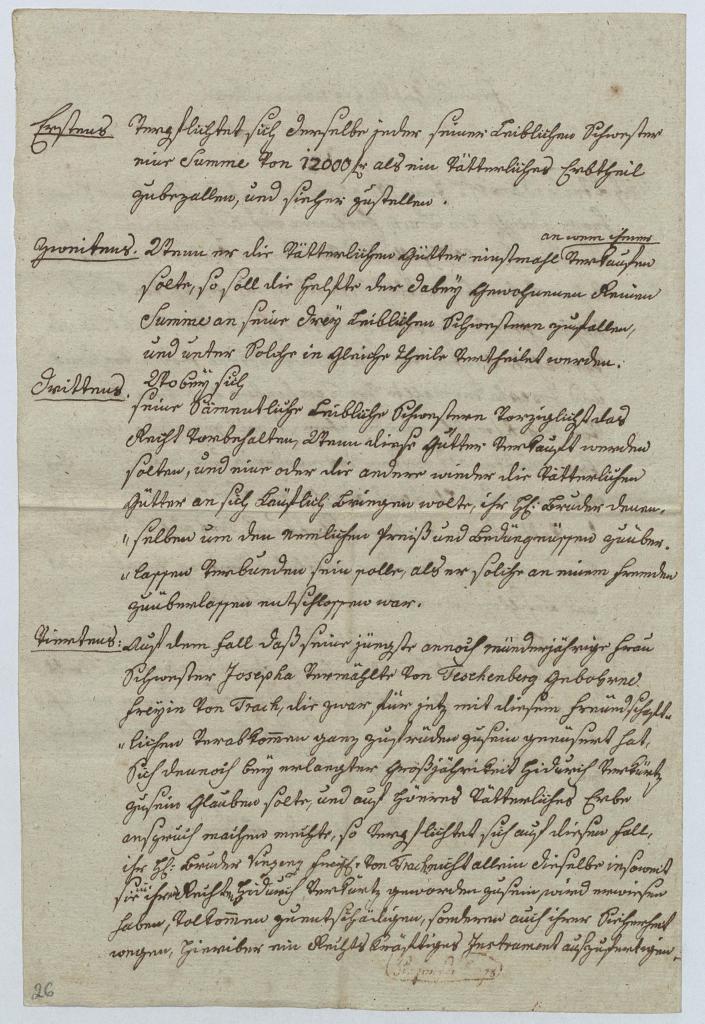 Erstens Verpflichtet sich derselbe jeder seiner Leiblichen Schwester
eine Summe von 12000 fr als ein Vätterliches Erbtheil
zubezallen, und sicher zustellen.
an wem immer
Zweitens. Wenn er die Vätterlichen Gütter einstmahl Verkaufen
solte, so soll die Helfte der dabey Gewohnenen Reinen
Summe an seine drey Leiblichen Schwestern zufallen,
und unter Solche in Gleiche Theile Vertheilet werden.
Drittens. Wobey sich
seine Sämentliche Leibliche Schwestern Vorziglichst das
Recht Vorbehalten, Wenn diese Gütter Verkauft werden
solten, und eine oder die andere wieder die Vätterlichen
Gütter an sich Käuflich Bringen wolte, ihr H: Bruder denen-
"selben um den nemlichen Preiß und Bedüngnüssen zuüber-
"lassen Verbunden sein solle, als er solche an einem Fremden
zuüberlassen entschlossen war.
Viertens: Auf dem Fall daß seine jüngste annoch münderjährige Frau
Schwester Josepha Vermählte von Teschenberg Gebohrne
Freyin von Trach, die zwar für jetz mit diesem Freündschaft-
"lichen Verabkommen ganz zufrüden zusein geeüsert hat,
Sich dennoch bey erlangter Großjährikeit hidurch Verkürtz
zusein Glauben solte, und auf Höeres Vätterliches Erbe
anspruch machen mechte, so Verpflichtet sich auf diesen Fall,
ihr H: Bruder Vinzenz Freyh: von Trach nicht allein dieselbe insoweit
sie ihre Rechte hidurch Verkürtz geworden zusein, wird erwiesen
haben, Volkommen zuentschädigen, sonderen auch ihrer Sicherheit
wegen, hieriber ein Rechts Kräftiges Instrument auszufertigen.
26